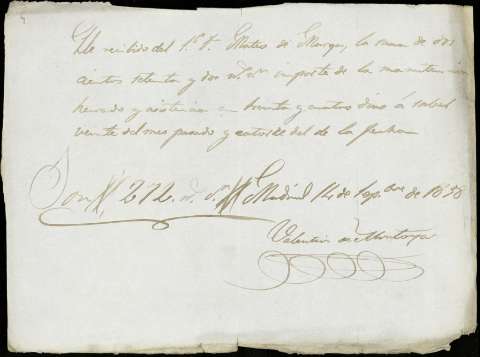 He recibido del Sr. D. Mateo de Murga, la suma de dos
cientos setenta y dos rs. vn. importe de la manutencion
herrado y asistencia en treinta y cuatro dias á saber
veinte del mes pasado y catorce del de la fecha
Son 272 rs. vn. Madrid 14 de Sep.bre de 1858
Valentin de Montoya